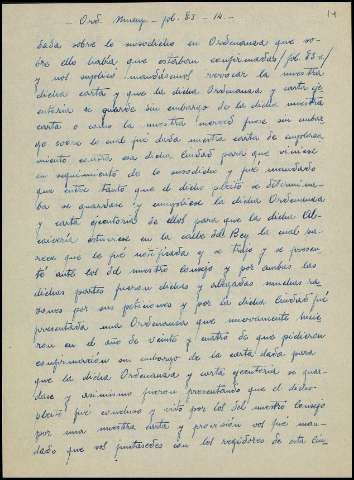 - Ord. Munic. - fol. 83 - 14. -
14
dada sobre lo susodicho en Ordenanza que so-
bre ello había que estaban confirmadas / fol. 83 v/
y nos suplicó mandásemos revocar la nuestra
dicha carta y que la dicha Ordenanza y carta eje-
cutoria se guarde sin embargo de la dicha nuestra
carta o como la nuestra merced fuese sin embar-
go sobre lo cual fué dada nuestra carta de emplaza-
miento contra esa dicha Ciudad para que viniese
en seguimiento de lo susodicho y fué mandado
que entre tanto que el dicho pleito se determina-
ba se guardase y cumpliese la dicha Ordenanza
y carta ejecutoria de ellos para que la dicha Al-
caicería estuviese en la calle del Rey la cual pa-
rece que le fué notificada y se trajo y se presen-
tó ante los del nuestro Consejo y por ambas las
dichas partes fueron dichas y alegadas muchas ra-
zones por sus peticiones y por la dicha Ciudad fué
presentada una Ordenanza que nuevamente hicie-
ron en el año de veinte y cuatro de que pidieron
confirmación sin embargo de la carta dada para
que la dicha Ordenanza y carta ejecutoria se guar-
dase y asimismo fueron presentando que el dicho
pleito fué concluso y visto por los del nuestro Consejo
por una nuestra carta y provisión vos fué man-
dado que vos juntasedes con los regidores de esta Ciu-